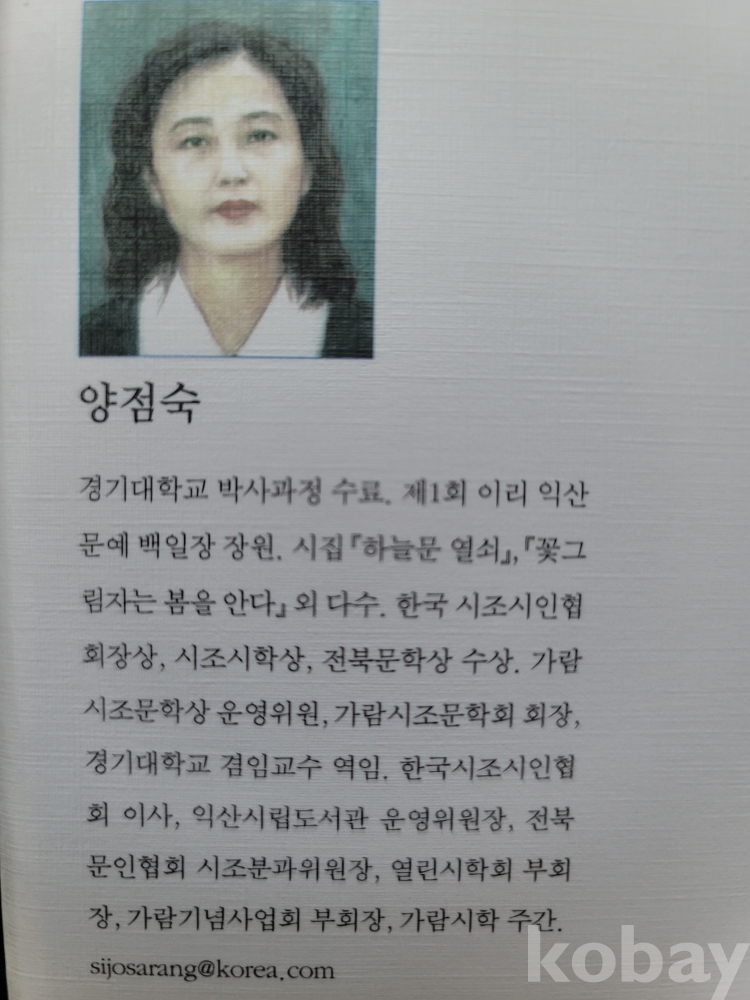 양점숙
경기대학교 박사과정 수료. 제1회 이리 익산
문예 백일장 장원. 시집『하늘문 열쇠』,『꽃그
림자는 봄을 안다』외 다수. 한국 시조시인협
회장상, 시조시학상, 전북문학상 수상. 가람
시조문학상 운영위원, 가람시조문학회 회장,
경기대학교 겸임교수 역임. 한국시조시인협
회 이사, 익산시립도서관 운영위원장, 전북
문인협회 시조분과위원장, 열린시학회 부회
장, 가람기념사업회 부회장, 가람시학 주간.
sijosarang@korea.com
kobay